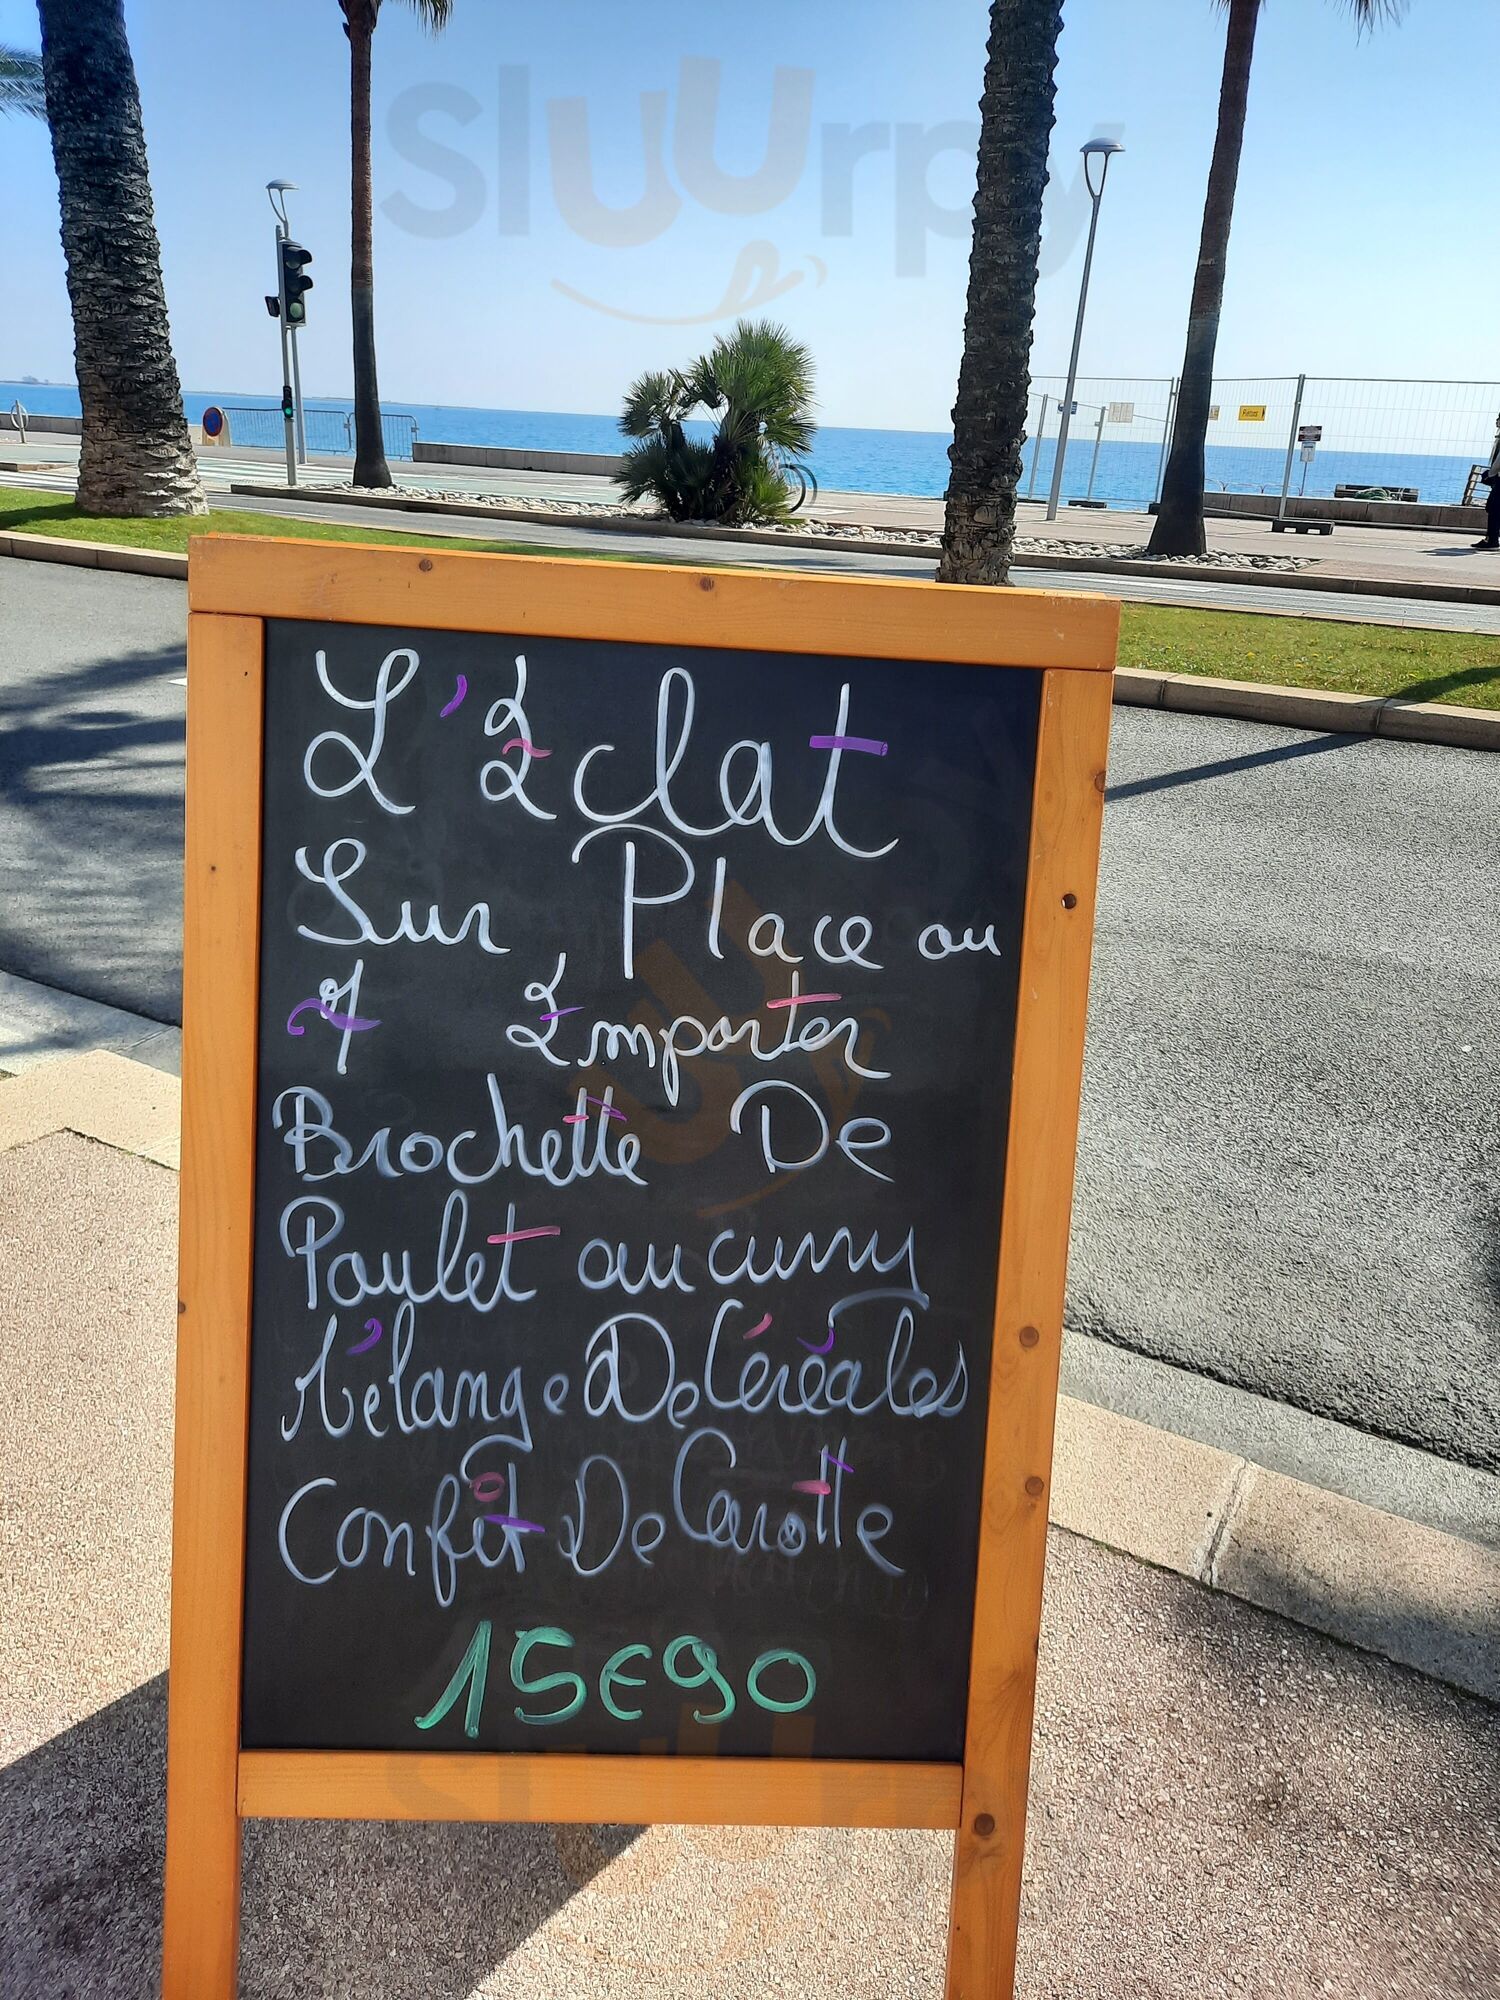 Sluurpy
Piétons
L'Eclat
Sur Place ou
A Emporter
Brochette De
Poulet au curry
Mélange De Céréales
Confit De Carotte
15€90